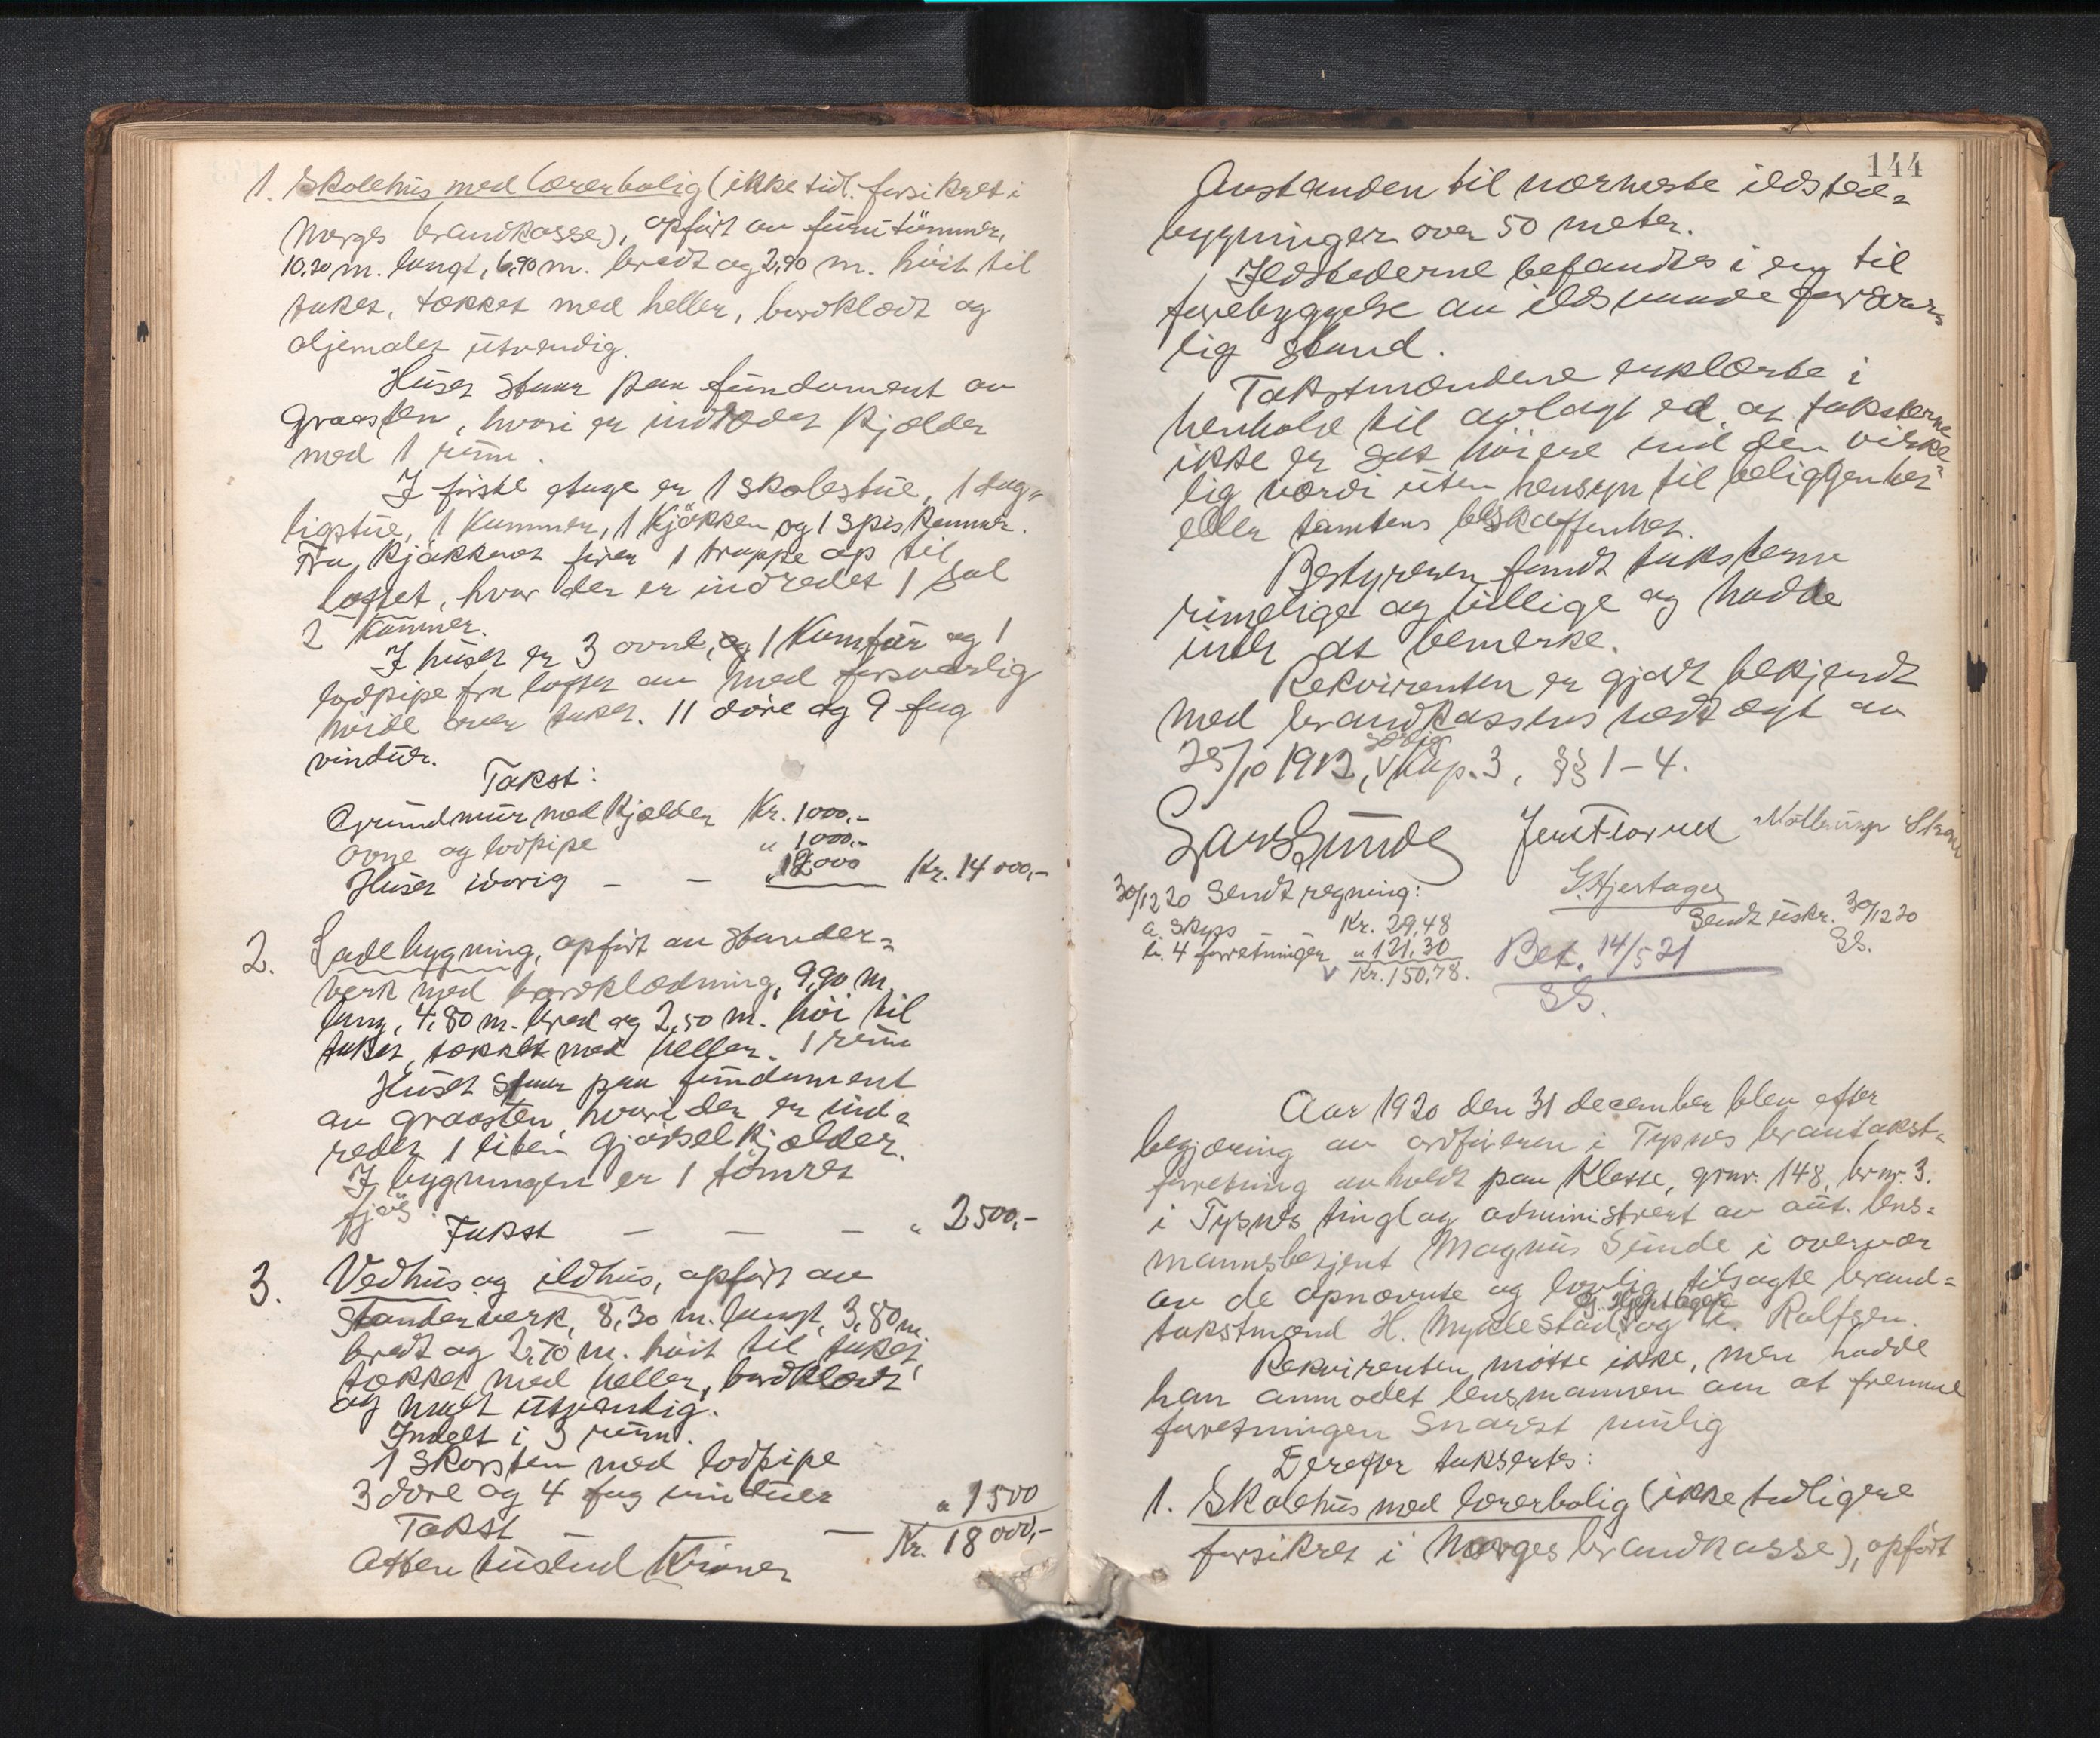 1. Skolehus med lærerbolig (ikke tidl. forsikret i
Norges brandkasse), opført av furutømmer,
10,20 m. langt, 6,90 m. bredt og 2,90 m. høit til
taket, tækket med heller, bordklædt og
oljemalet utvendig.
Huset staar paa fundament av
graasten, hvori er indrædet kjælder
med 1 rum.
I første etage er 1 skolestue, 1 dag-
ligstue, 1 kammer, 1 kjøkken og 1 spiskammer.
Fra kjøkkenet fører 1 trappe op til
loftet, hvor der er indredet 1 sal
2 kammer.
I huset er 3 ovne, og 1 komfur og 1
lodpipe fra loftet av med forsvarlig
høide over taket. 11 døre og 9 fag
vinduer.
Takst:
Grundmur med kjælder Kr. 1000,-
Ovne og lodpipe " 1000,-
Huset iøvrig - - " 12000 Kr. 14000,-
2. Ladebygning, opført av stander-
verk med bordklædning, 9,90 m.
lang, 4,80 m. bred og 2,50 m. høi til
taket, tækket med heller. 1 rum
Huset staar paa fundament
av graasten, hvori der er ind-
redet 1 liten gjødselkjælder.
I bygningen er 1 tømret
fjøs.
Takst - - - " 2500,-
3. Vedhus og ildhus, opført av
standerverk, 8,30 m. langt, 3,80 m.
bredt og 2,70 m. høit til taket,
tækket med heller, bordklædt
og malt utvendig.
Indelt i 3 rum.
1 skorsten med lodpipe
3 døre og 4 fag vinduer
Takst - - " 1500
Kr. 18000,-
Atten tusend Kroner
144
Avstanden til nærmeste ildsted-
bygninger over 50 meter.
Ildstederne befandtes i en til
forebyggelse av ildsvaade forsvar-
lig stand.
Takstmændene erklærte i
henhold til avlagt ed, at taksterne
ikke er sat høiere end den virke-
lig værdi uten hensyn til beliggenhet
eller tomtens beskaffenhet.
Bestyreren fandt taksterne
rimelige og billige og hadde
intet at bemerke.
Rekvirenten er gjort bekjendt
med brandkassens vedtægt av
25/10 1912, særlig kap. 3, §§ 1-4.
Lars Sunde
G. Hjertager
30/12 20 Sendt regning:
a. Skyss - Kr. 29,48
b. 4 forretninger " 121,30
Kr. 150,78.
Sendt utskr. 30/12 20
SS.
Bet. 14/5 21
SS.
Aar 1920 den 31 december blev efter
begjæring av ordføreren i Tysnes brantakst-
forretning avholdt paa Kletse, grnr. 148, br.nr. 3.
i Tysnes tinglag administrert av aut. lens-
mannsbetjent Magnus Sunde i overvær
av de opnævnte og lovlig tilsagte brand-
takstmænd H. Myklestad, G. Hjertager og K. Rolfsen.
Rekvirenten møtte ikke, men hadde
han anmodet lensmannen om at fremme
forretningen snarest mulig
Derefter takseres:
1. Skolehus med lærerbolig (ikke tidligere
forsikret i Norges brandkasse), opført